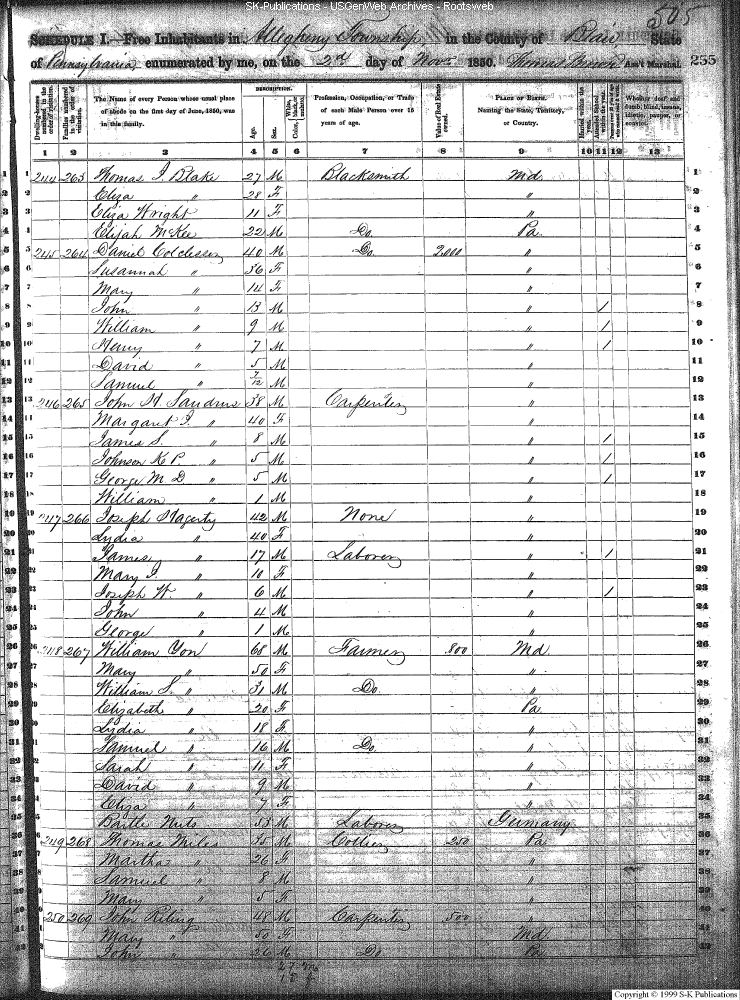 SK-Publications - USGenWeb Archives - Rootsweb
505
SCHEDULE I.—Free Inhabitants in Allegheny Township in the County of Blair State
of Pennsylvania enumerated by me, on the 2d day of Nov 1850. Thomas Ass't Marshal. 255
Dwelling-houses numbered in the order of visitation.
Families numbered in the order of visitation.
The Name of every Person whose usual place of abode on the first day of June, 1850, was in this family.
DESCRIPTION.
Age.
Sex.
Color, White, black, or mulatto.
Profession, Occupation, or Trade of each Male Person over 15 years of age.
Value of Real Estate owned.
PLACE OF BIRTH. Naming the State, Territory, or Country.
Married within the year.
Attended School within the year.
Whether deaf and dumb, blind, insane, idiotic, pauper, or convict.
1 2 3 4 5 6 7 8 9 10 11 12 13
1 244 263 Thomas J. Blake 27 M Blacksmith Md 1
2 Eliza " 28 F " 2
3 Eliza Wright 11 F " 3
4 Elijah McKee 22 M Do. Pa 4
5 245 264 Daniel 40 M Do. 2,000 " 5
6 Susannah " 36 F " 6
7 Mary " 14 F " 7
8 John " 13 M " / 8
9 William " 9 M " / 9
10 Henry " 7 M " / 10
11 David " 5 M " 11
12 Samuel " M " 12
13 246 265 John 38 M Carpenter " 13
14 Margaret J. " 40 F " 14
15 James S. " 8 M " / 15
16 Johnson K P. " 5 M " / 16
17 George M D " 5 M " / 17
18 William " 1 M " 18
19 247 266 Joseph Hagerty 42 M None " 19
20 Lydia " 40 F " 20
21 James " 17 M Laborer " / 21
22 Mary J. " 10 F " 22
23 Joseph W. " 6 M " / 23
24 John " 4 M " 24
25 George " 1 M " 25
26 248 267 William Yon 68 M Farmer 800 Md 26
27 Mary " 50 F " 27
28 William S. " 31 M Do. " 28
29 Elizabeth " 20 F Pa 29
30 Lydia " 18 F " 30
31 Samuel " 16 M Do. " 31
32 Sarah " 11 F " 32
33 David " 9 M " 33
34 Eliza " 7 F " 34
35 M Laborer Germany 35
36 249 268 Thomas Miles 35 M Collier 250 Pa 36
37 Martha " 26 F " 37
38 Samuel " 8 M " 38
39 Mary " 5 F " 39
40 250 269 John 48 M Carpenter 500 " 40
41 Mary " 50 F Md 41
42 John " M Do Pa 42
Copyright © 1999 S-K Publications